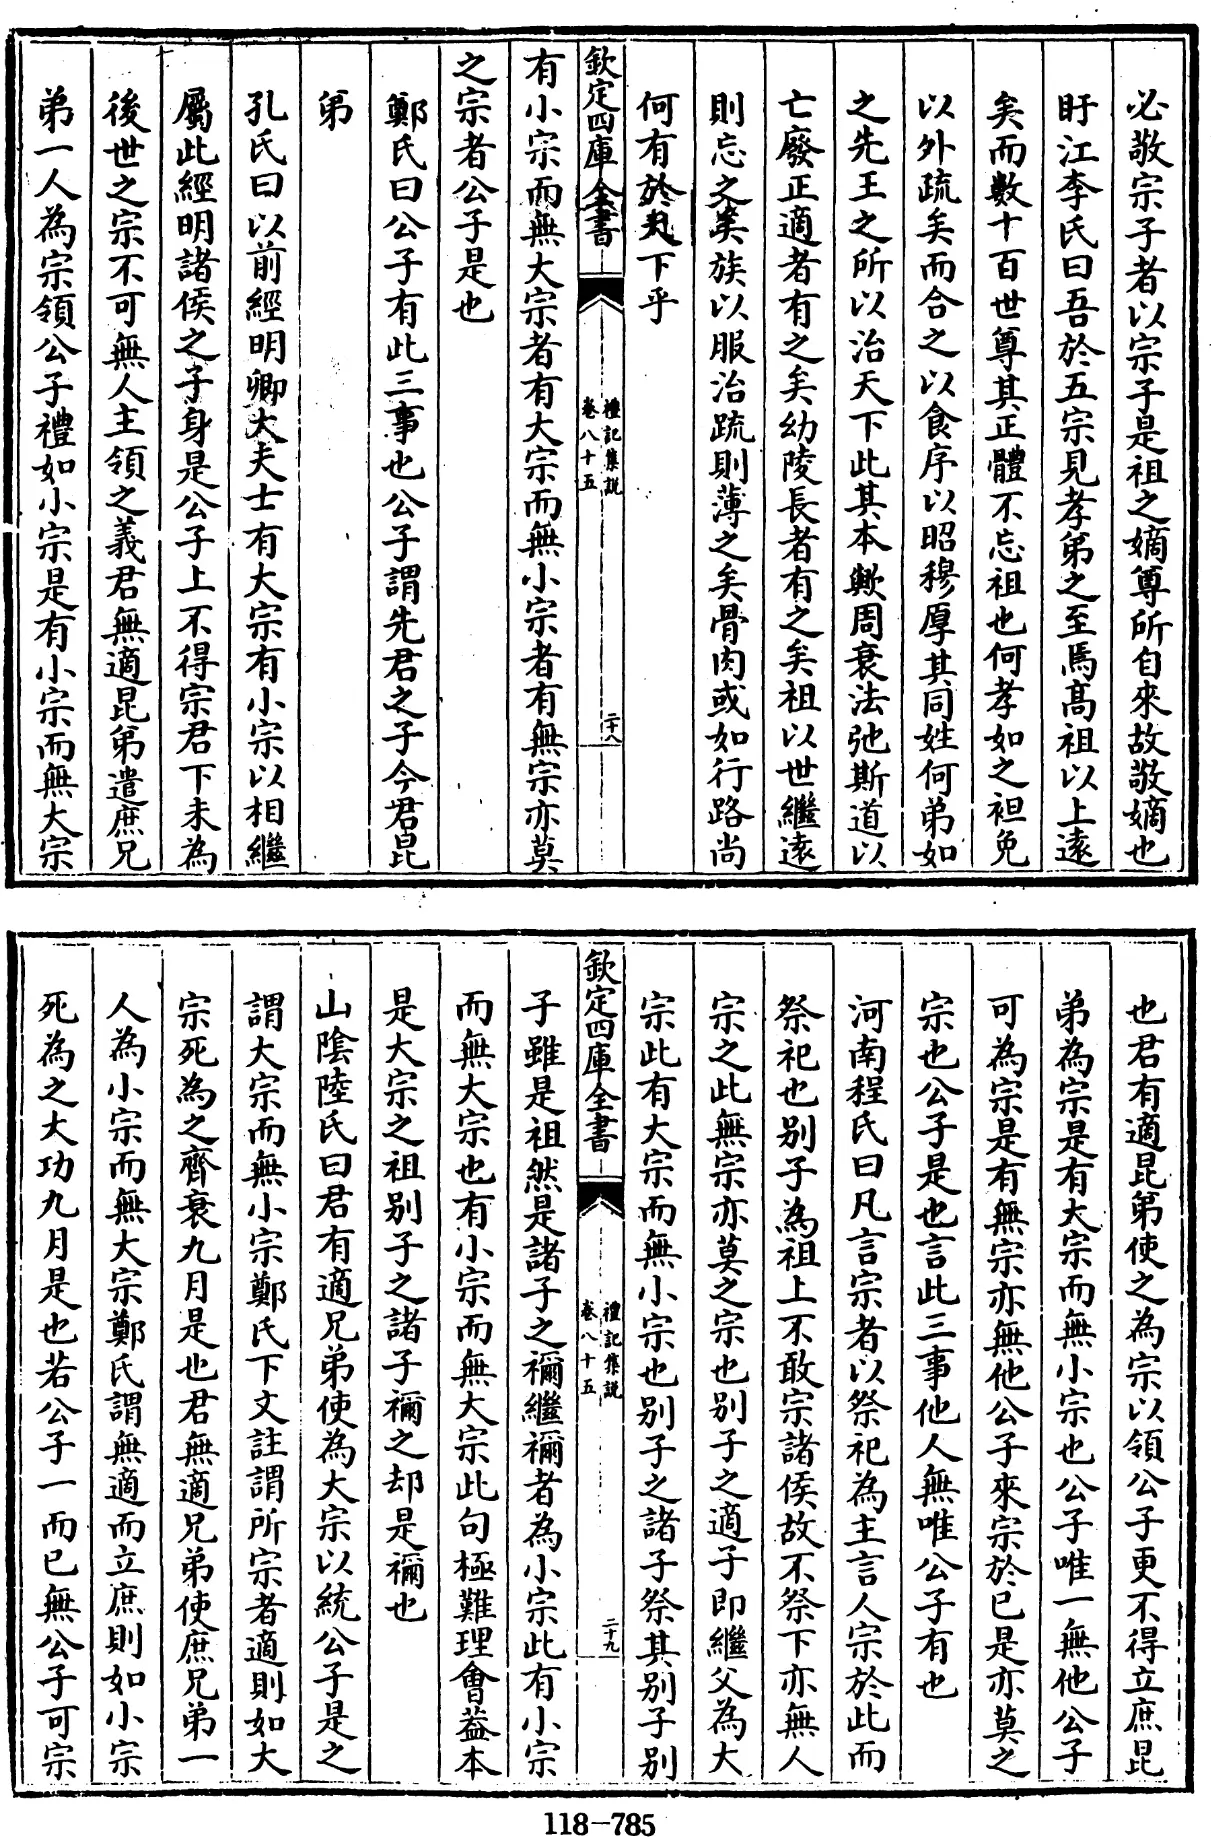 必敬宗子者以宗子是祖之嫡尊所自來故敬嫡也
盱江李氏曰吾於五宗見孝弟之至焉髙祖以上逺
矣而數十百世尊其正體不忘祖也何孝如之袒免
以外疏矣而合之以食序以昭穆厚其同姓何弟如
之先王之所以治天下此其本歟周衰法弛斯道以
亡廢正適者有之矣幼陵長者有之矣祖以世繼逺
則忘之矣族以服治疏則薄之矣骨肉或如行路尚
何有於天下乎
欽定四庫全書
禮記集説
卷八十五
二十八
有小宗而無大宗者有大宗而無小宗者有無宗亦莫
之宗者公子是也
鄭氏曰公子有此三事也公子謂先君之子今君昆
弟
孔氏曰以前經明卿大夫士有大宗有小宗以相繼
屬此經明諸侯之子身是公子上不得宗君下未為
後世之宗不可無人主領之義君無適昆弟遣庶兄
弟一人為宗領公子禮如小宗是有小宗而無大宗
也君有適昆弟使之為宗以領公子更不得立庶昆
弟為宗是有大宗而無小宗也公子唯一無他公子
可為宗是有無宗亦無他公子來宗於已是亦莫之
宗也公子是也言此三事他人無唯公子有也
河南程氏曰凡言宗者以祭祀為主言人宗於此而
祭祀也别子為祖上不敢宗諸侯故不祭下亦無人
宗之此無宗亦莫之宗也别子之適子即繼父為大
宗此有大宗而無小宗也别子之諸子祭其别子别
欽定四庫全書
禮記集説
卷八十五
二十九
子雖是祖然是諸子之禰繼禰者為小宗此有小宗
而無大宗也有小宗而無大宗此句極難理會葢本
是大宗之祖别子之諸子禰之却是禰也
山隂陸氏曰君有適兄弟使為大宗以統公子是之
謂大宗而無小宗鄭氏下文註謂所宗者適則如大
宗死為之齊衰九月是也君無適兄弟使庶兄弟一
人為小宗而無大宗鄭氏謂無適而立庶則如小宗
死為之大功九月是也若公子一而已無公子可宗
118-785